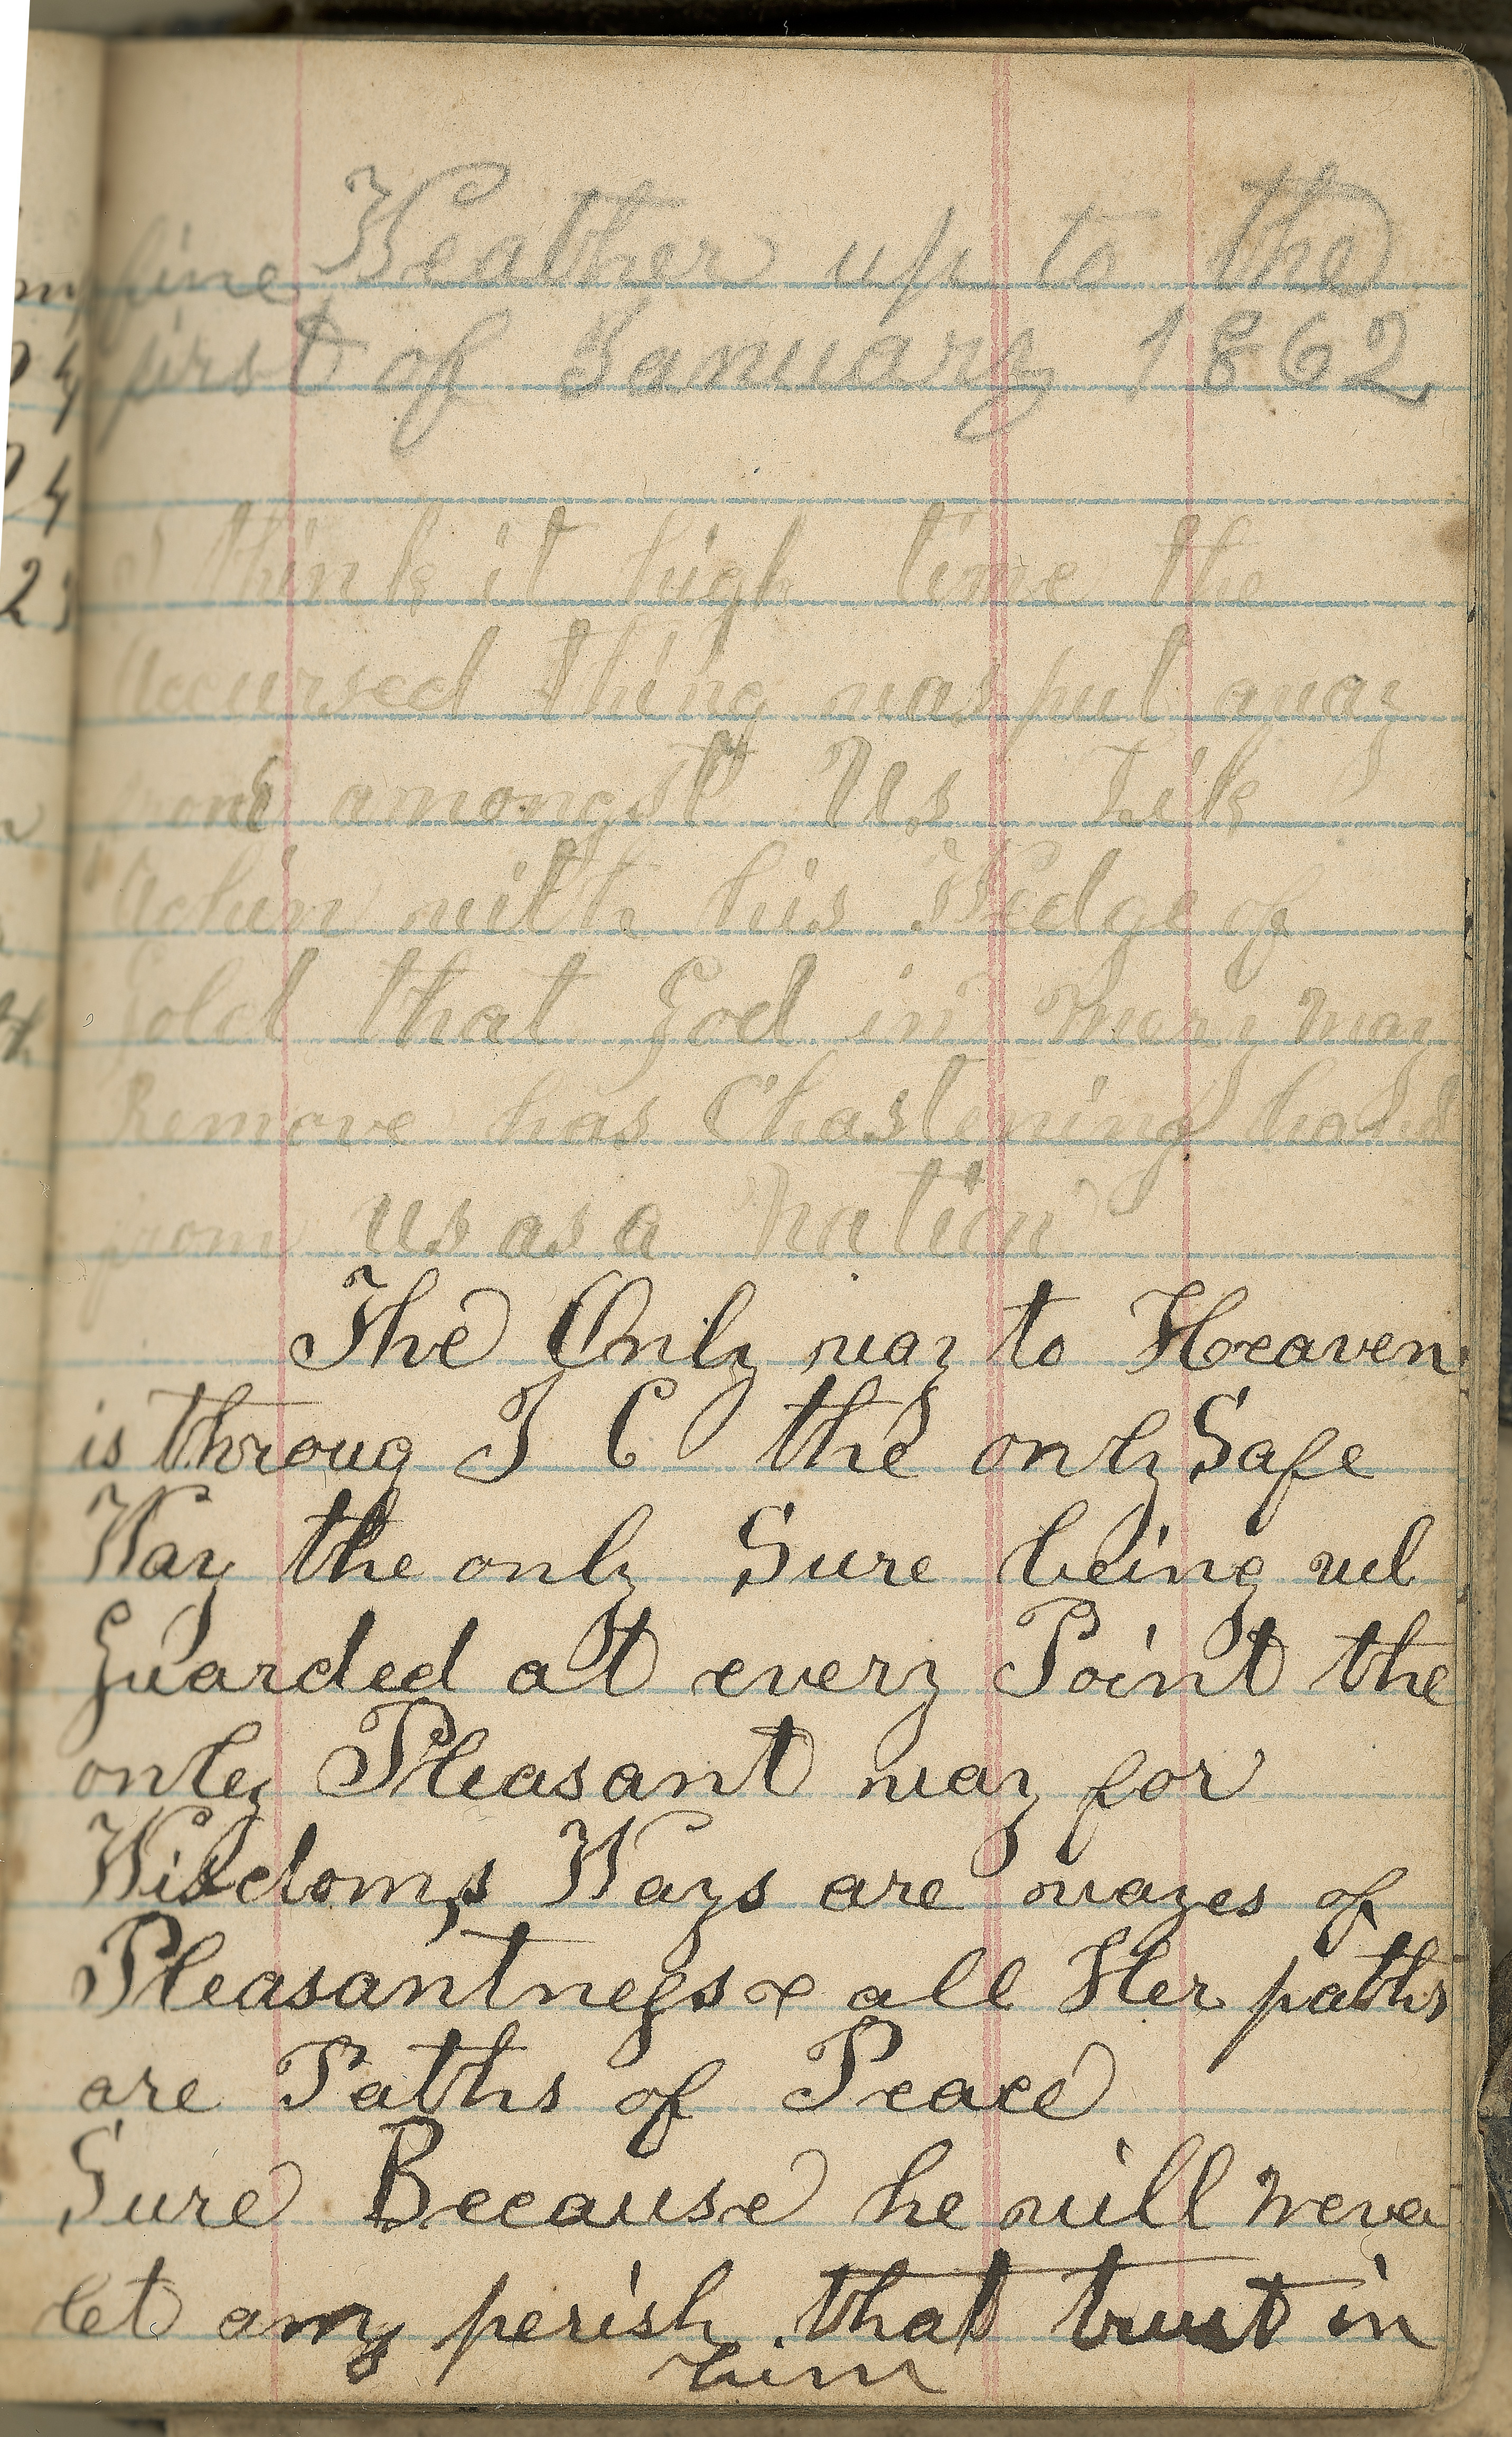 fine Weather up to the
first of January 1862
I think it high time the
Accursed thing was put away
from amongst Us Lik
Achan with his Wedge of
Gold that God in mercy may
Remove has Chastening hand
from us as a nation
The Only way to Heaven
is throug J C the only Safe
Way the only Sure being wel
Guarded at every Point the
only Pleasant way for
Wisdom,s Ways are wayes of
Pleasantness & all Her paths
are Paths of Peace
Sure Because he will never
let any perish that trust in
him